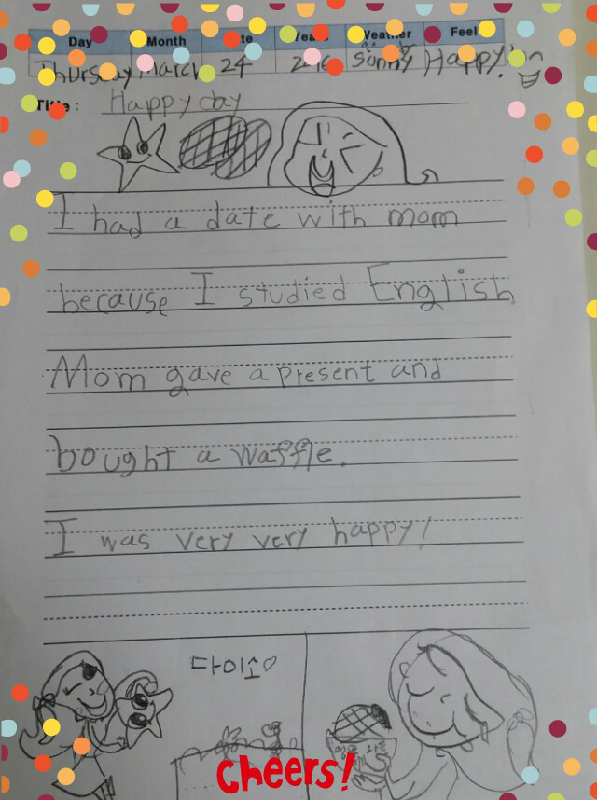 Day Month Date Year Weather Feel
Thursday March 24 2016 Sunny Happy!
Title : Happy day
I had a date with mom
because I studied English
Mom gave a present and
bought a waffle.
I was very very happy!
다이소♡
Cheers!